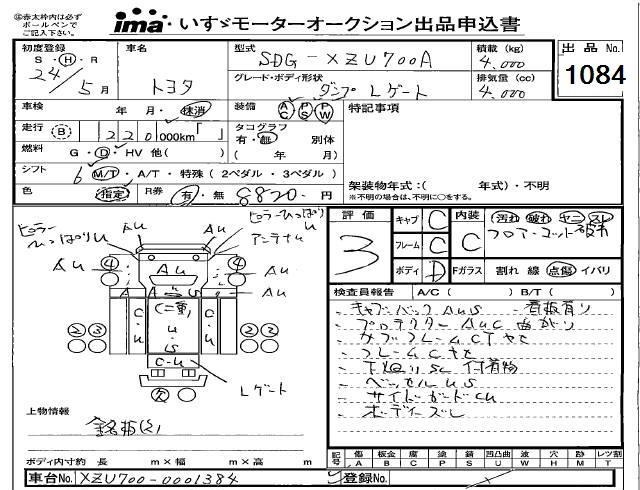 ※赤太枠内は必ず
ボールペンで
ご記入下さい。
ima いすゞモーターオークション出品申込書
初度登録 車名 型式 SDG-XZU700A 積載 (kg) 4.000 出品No.
S・H・R 24/5月 トヨタ グレード・ボディ形状 ダンプ Lゲート 排気量 (cc) 4.000 1084
車検 年・月・抹消 装備 AC PS PW 特記事項
走行 (B) 1220000km「 」 タコグラフ 有・無 別体
燃料 G・D・HV 他( ) ( 年 月)
シフト 6 M/T・A/T・特殊(2ペダル・3ペダル) 架装物年式:( 年式)・不明
色 指定 R券 有・無 8820-円 ※不明の場合は、不明に○をする。
ピラー いっぱりU ピラーひっぱりU 評価 キャブ C 内装 汚れ 破れ ヤニ スレ
アンテナU 3 フレーム C C フロアーマット破れ
ボディ D Fガラス 割れ 線 点傷 イバリ
AU AU AU 検査員報告 A/C( ) B/T( )
④ ④ キャブバックAUS 看板有り
A A U S AU プロテクターAUC 曲がり
C-U (二重) C-U サブフレームCTヤセ
② ③ U・S ② ② フレームCヤセ
C-U 下廻りSC 付着物
Lゲート ベッセルUS
欠 サイドガードCU
上物情報 ボディーズレ
銘板(欠)
ボディ内寸約 長 m×幅 m×高 m 記号 傷 A 板金 B 腐 C 塗 P 錆 S 凹凸曲 U 波 W 穴 H 跡 M レッツ割 T
車台No. XZU700-0001384 登録No.